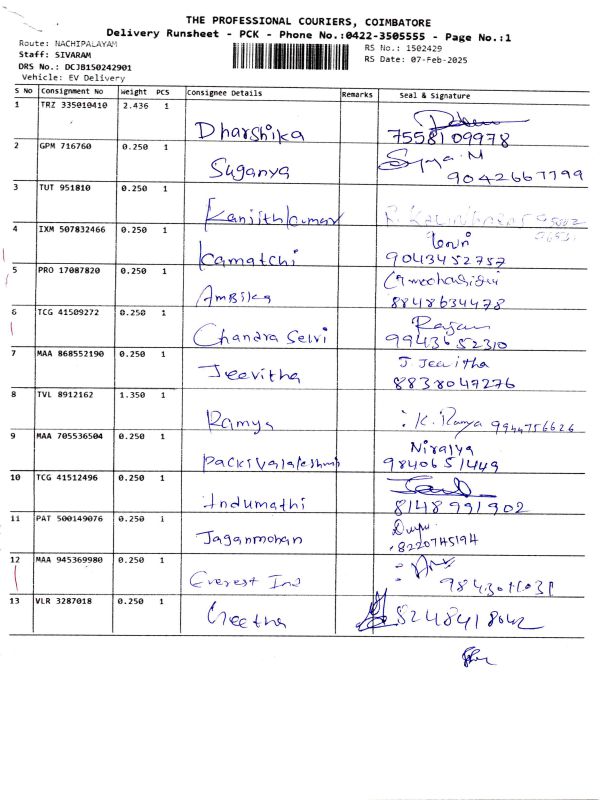 THE PROFESSIONAL COURIERS, COIMBATORE
Delivery Runsheet - PCK - Phone No.:0422-3505555 - Page No.:1
Route: NACHIPALAYAM
RS No.: 1502429
Staff: SIVARAM
RS Date: 07-Feb-2025
DRS No.: DCJB150242901
Vehicle: EV Delivery
S No Consignment No Weight PCS Consignee Details Remarks Seal & Signature
1 TRZ 335010410 2.436 1 Dharshika
7558109978
2 GPM 716760 0.250 1 Suganya
9042667799
3 TUT 951810 0.250 1 Ranjithkumar
4 IXM 507832466 0.250 1 Kamatchi
9043452757
5 PRO 17087820 0.250 1 Ambika
8848634478
6 TCG 41509272 0.250 1 Chandra Selvi Rajan
9943652310
7 MAA 868552190 0.250 1 Jeevitha J. Jeevitha
8838047276
8 TVL 8912162 1.350 1 Ramya K. Ramya 9944756626
9 MAA 705536504 0.250 1 Nirajya
9840651449
10 TCG 41512496 0.250 1 Indumathi
8148991902
11 PAT 500149076 0.250 1 Jaganmohan
8220745194
12 MAA 945369980 0.250 1 Everest Ind
13 VLR 3287018 0.250 1 Geetha